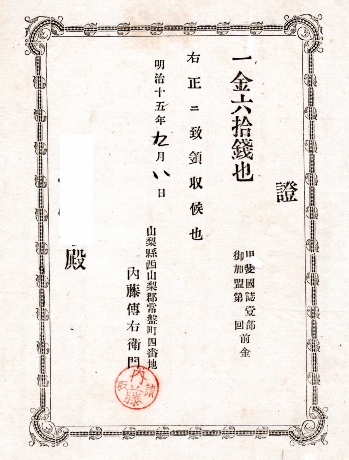 證
甲斐國誌壹部前金
御加盟第 回
一金六拾錢也
右正ニ致領取候也
明治十五年九月八日
山梨縣西山梨郡常盤町四番地
內藤傳右衛門
殿